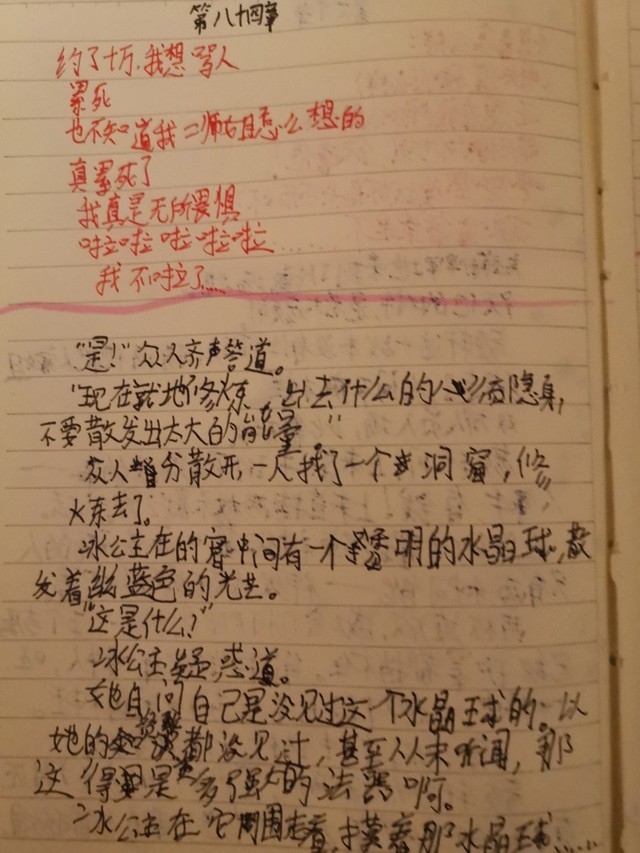 第八十四章
约了十万.我想骂人
累死
也不知道我二师姐怎么想的
真累死了
我真是无所畏惧
啦啦啦啦啦......
我不啦了.....
"是!"众人齐声答道。
"现在就地修炼 出去什么的人必须隐身,
不要散发出太大的能量。"
众人皆分散开,一人找了一个洞窟,修
炼去了。
冰公主在的窟中间有一个透明的水晶球,散
发着幽蓝色的光芒。
"这是什么?"
冰公主疑惑道。
她自问自己是没见过这个水晶球的。以
她的资历都没见过,甚至从未听闻,那
这得是多强大的法器啊。
冰公主在它周围走着,摸着那水晶球……